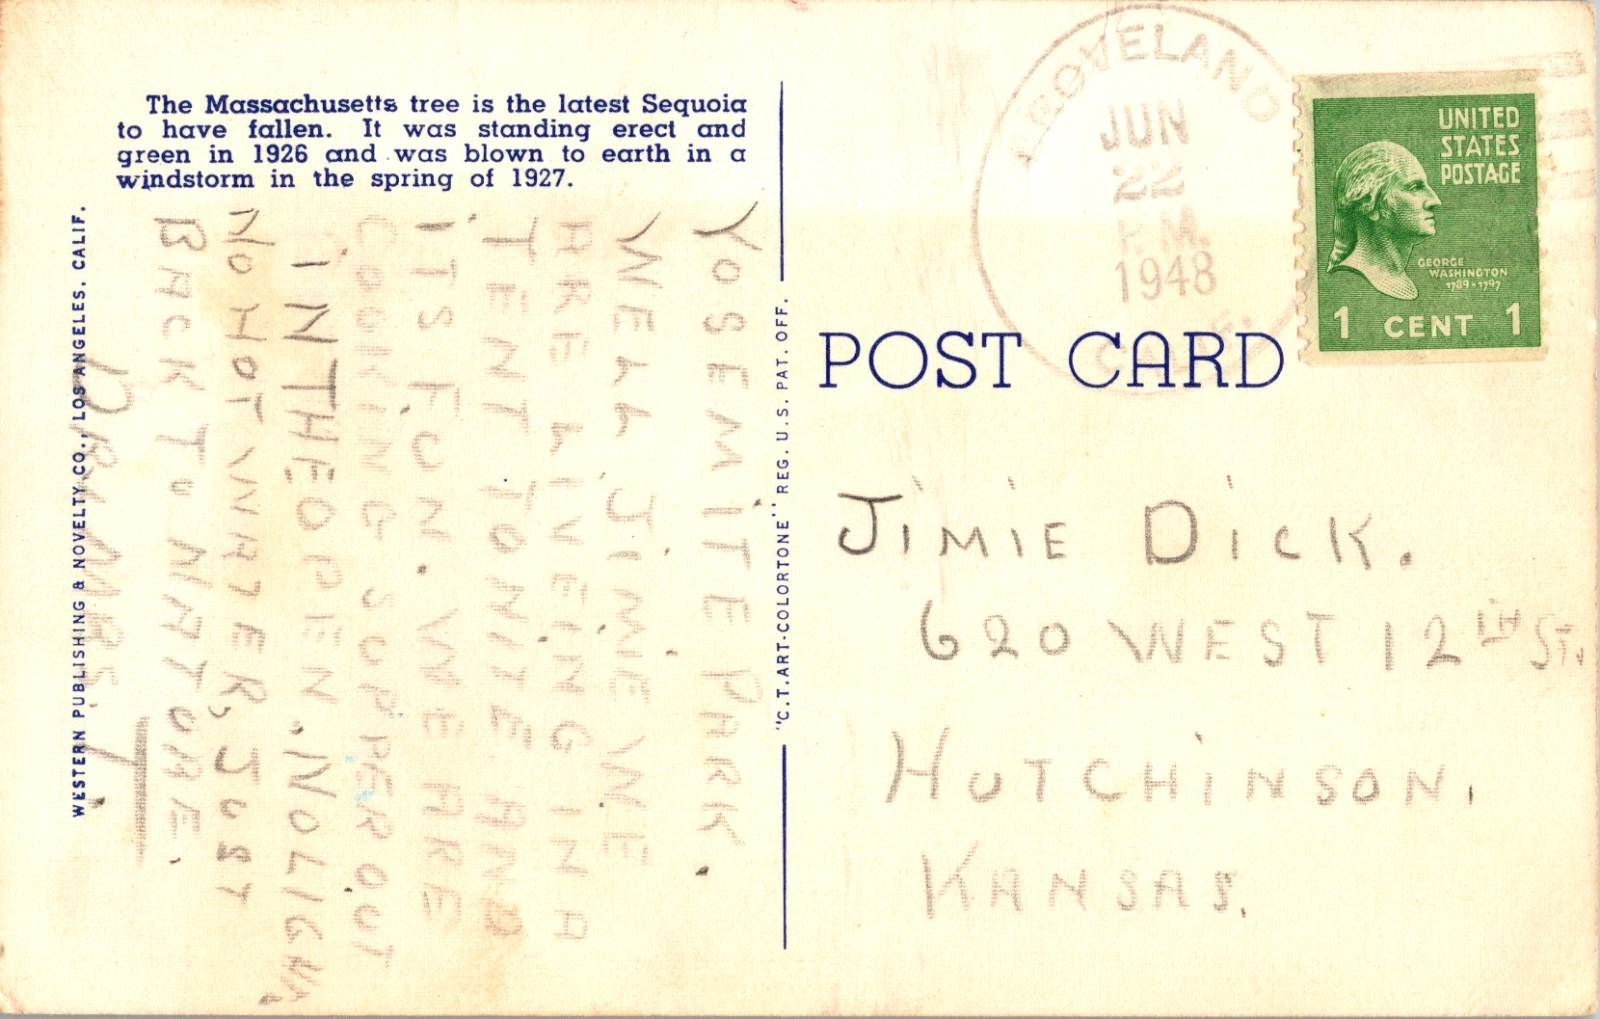 The Massachusetts tree is the latest Sequoia
to have fallen. It was standing erect and
green in 1926 and was blown to earth in a
windstorm in the spring of 1927.
YOSEMITE PARK.
WELL JIMIE WE
ARE LIVEING IN A
TENT TONITE AND
ITS FUN. WE ARE
COOKING SUPPER OUT
IN THE OPEN. NO LIGHT,
NO HOT WATER, JUST
BACK TO NATURE.
WESTERN PUBLISHING & NOVELTY CO., LOS ANGELES, CALIF.
"C.T.ART-COLORTONE" REG. U.S. PAT. OFF.
GROVELAND
JUN
22
P.M.
1948
UNITED
STATES
POSTAGE
GEORGE
WASHINGTON
1789-1797
1 CENT 1
POST CARD
JIMIE DICK.
620 WEST 12TH ST.
HUTCHINSON,
KANSAS.